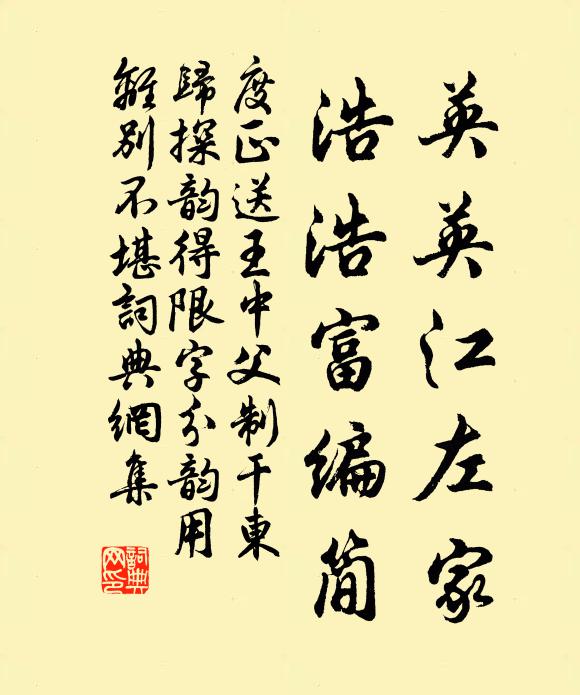 英英江左家
浩浩富編簡
度正送王中父制干東
歸探韵得限字分韵用
離別不堪詞典網集
詞典網印